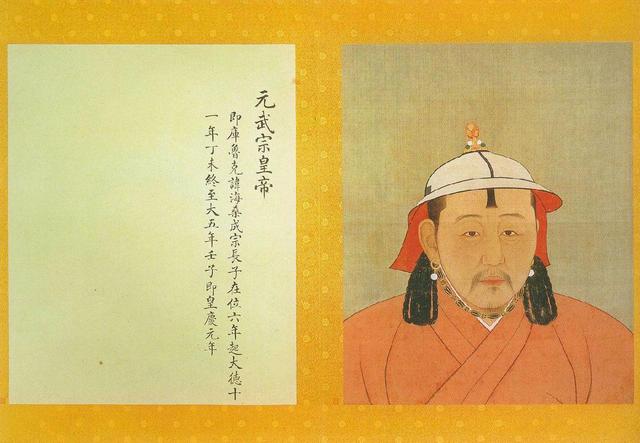 元武宗皇帝
即庫魯克諱海桑成宗長子在位六年起大德十
一年丁未終至大五年壬子即皇慶元年